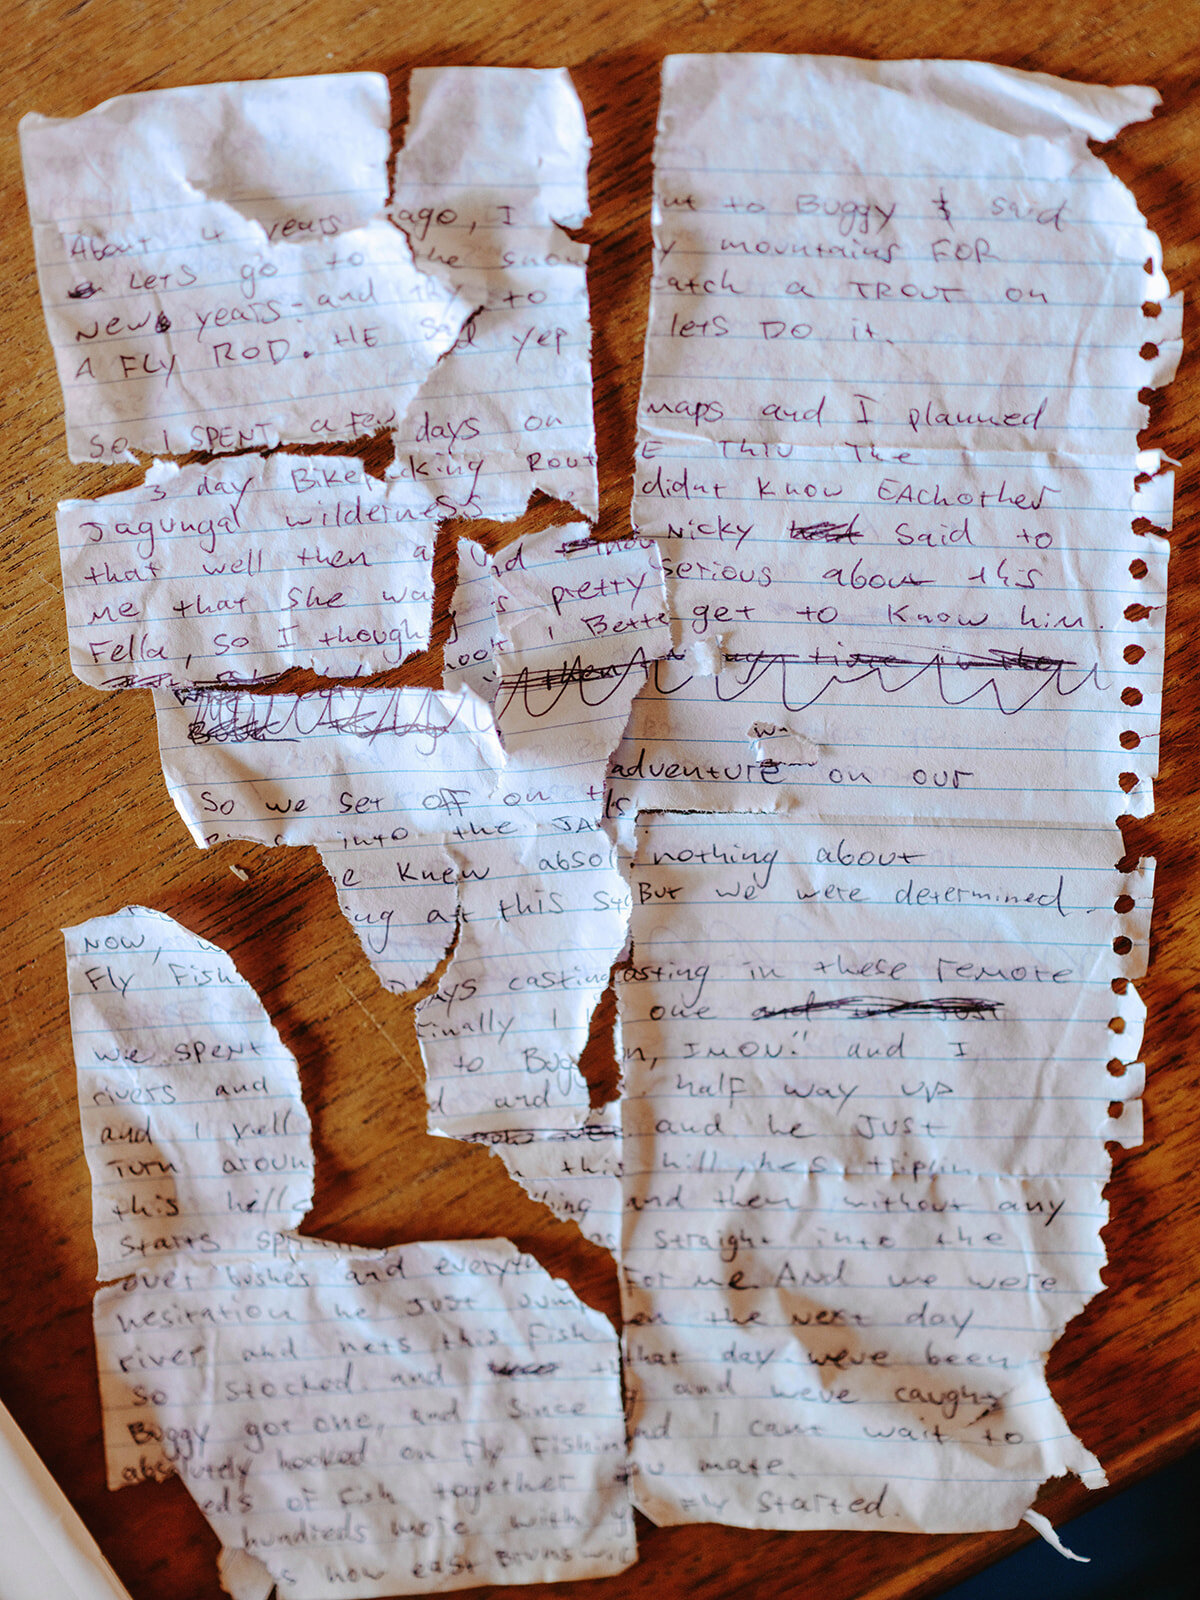 About 4 years ago, I ut to Buggy & said
Lets go to the snow y mountains FOR
New years - and try to atch a TROUT on
A FLY ROD. HE said yep lets DO it.
So I SPENT a few days on maps and I planned
3 day Bikepacking Rout E Thru The
Jagungal wilderness. didnt know EAchother
that well then and Nicky said to
me that she wa s pretty serious about this
Fella, so I though Bette get to know him.
then my time in the
So we set off on this adventure on our
into the JA
e knew absol nothing about
ing at this st But we were determined.
Now, w
Fly Fish
we spent ays casting asting in these remote
rivers and Finally I one and we just
and I yell to Bugg n, IMON!" and I
Turn aroun d and half way up
this hill and he JUST
starts sp this hill, hes trippin
over bushes and everything and then without any
hesitation he JUST Jump straight into the
river and nets this fish For me AND we were
so stocked. and en the next day
Buggy got one, and since that day weve been
absolutely hooked on Fly Fishin g and weve caught
eds of fish together nd I cant wait to
hundreds more with you mate.
s how east Brunswic Fly started.